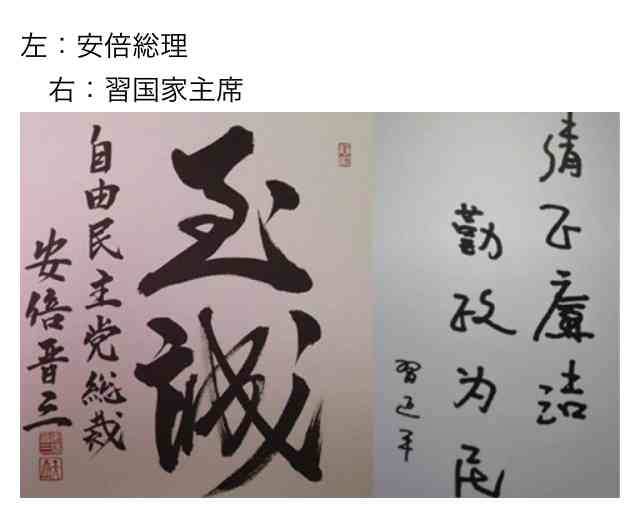 左：安倍総理
右：習国家主席
至誠
自由民主党総裁
安倍晋三
清正廉洁
勤政为民
习近平